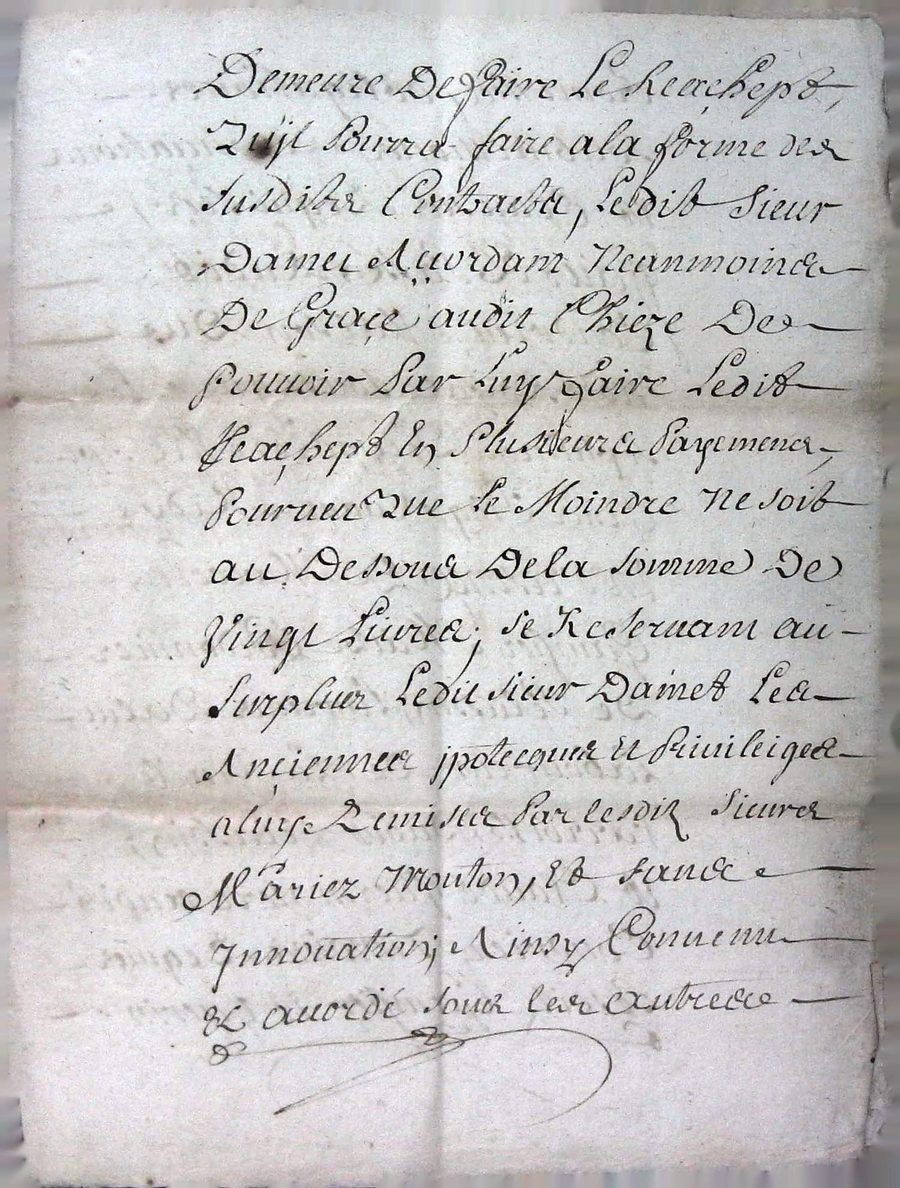 Demeure De faire Le Reachept,
Quyl Pourra faire a la forme des
susdits Contracts, Ledit Sieur
Damet Accordant Neanmoins
De Grace audit Chieze De
Pouuoir Par Luy faire Ledit
Reachept En Plusieurs Payements,
Pourueu Que le Moindre Ne soit
au Dessous De la somme De
Vingt Liures, se Reseruant au
surplus Ledit sieur Damet Les
Anciennes jpotecques Et Priuileiges
a luy Remises Par lesdits Sieurs
Mariez Mouton, Et sans
Innouation; Ainsy Conuenu
& accordé sous les autres